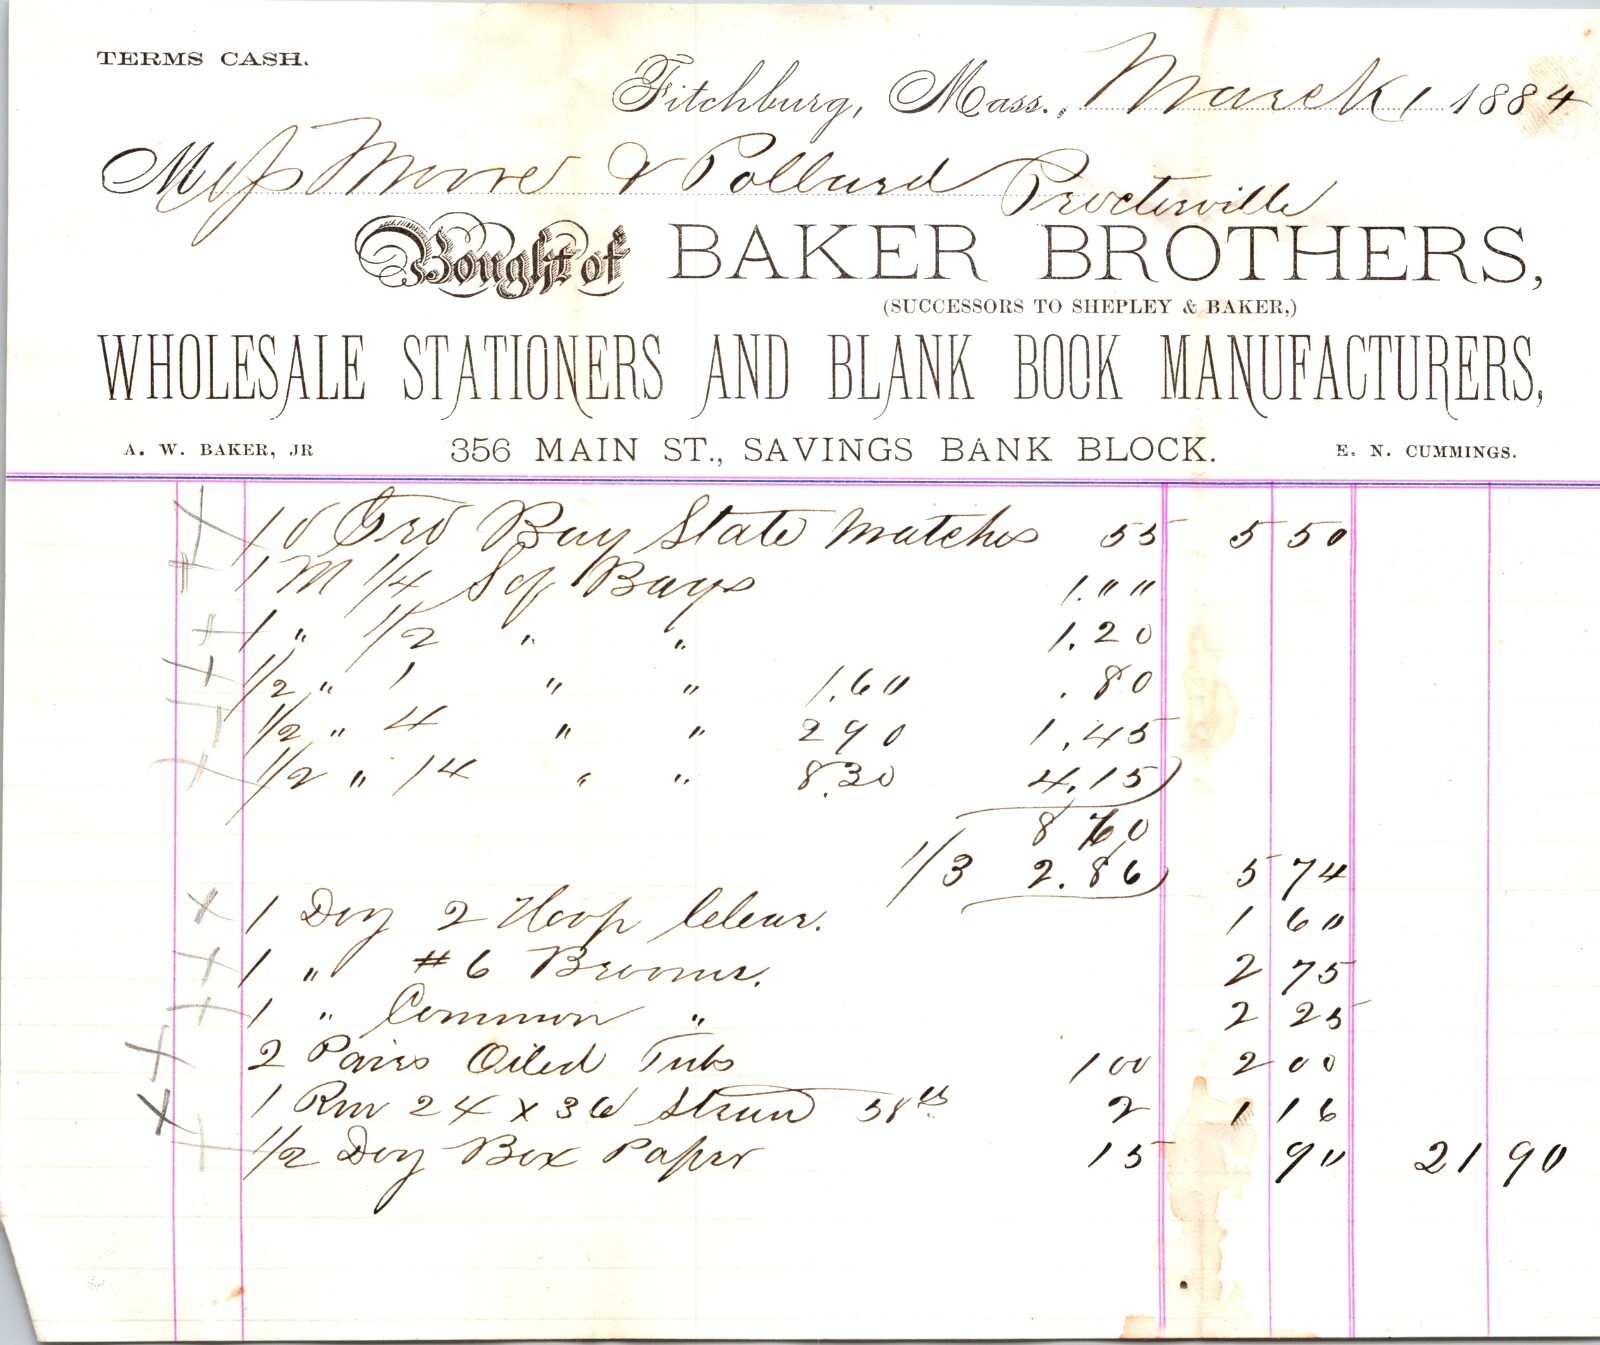 TERMS CASH.
Fitchburg, Mass., March 1 1884
Mess Moore & Pollard Proctorsville
Bought of BAKER BROTHERS,
(SUCCESSORS TO SHEPLEY & BAKER,)
WHOLESALE STATIONERS AND BLANK BOOK MANUFACTURERS,
A. W. BAKER, JR 356 MAIN ST., SAVINGS BANK BLOCK. E. N. CUMMINGS.
10 Gro Bay State Matches 55 5 50
1 M 1/4 Sq Bags 1.00
1 " 1/2 " " 1.20
1/2 " 1 " " 1.60 .80
1/2 " 4 " " 290 1.45
1/2 " 14 " " 8.30 4.15
8 60
1/3 2.86 5 74
1 Doz 2 Hoop 1 60
1 " #6 Brooms. 2 75
1 " Common " 2 25
2 Pairs Oiled Tubs 100 2 00
1 Rm 24 x 36 Straw 58 lb 2 1 16
1/2 Doz Box Paper 15 90 21 90